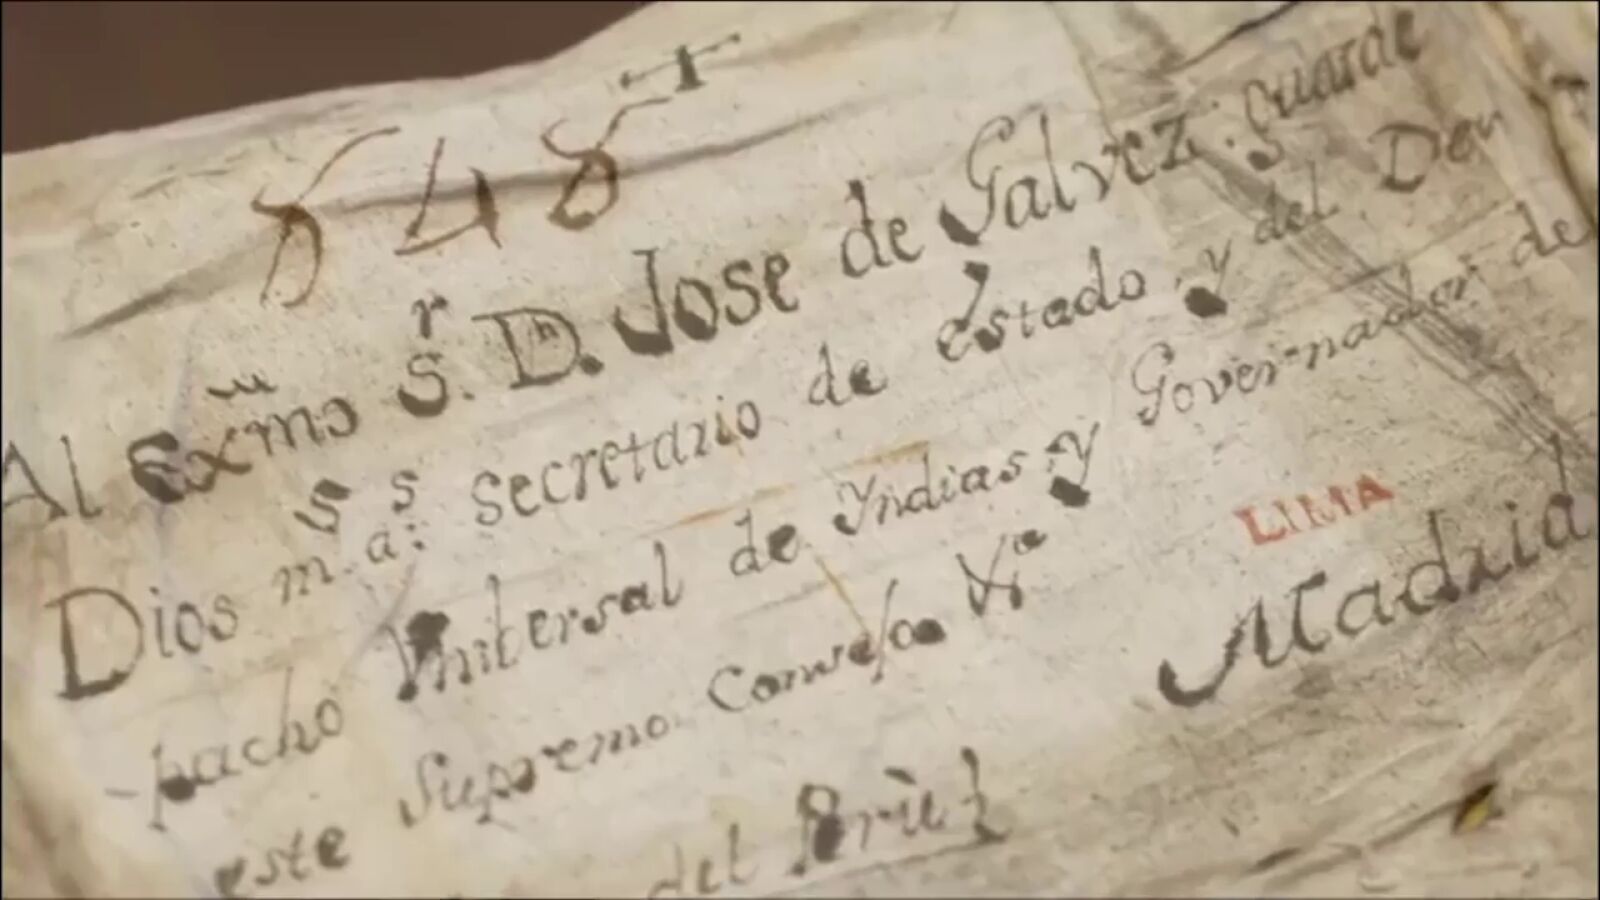 848
Al Exmo Sr. Dn. Jose de Galvez guarde
Dios ms. as: secretario de estado, y del Des
-pacho Vnibersal de Yndias, y Governador de
este Supremo Consejo &a
LIMA
Madrid
del